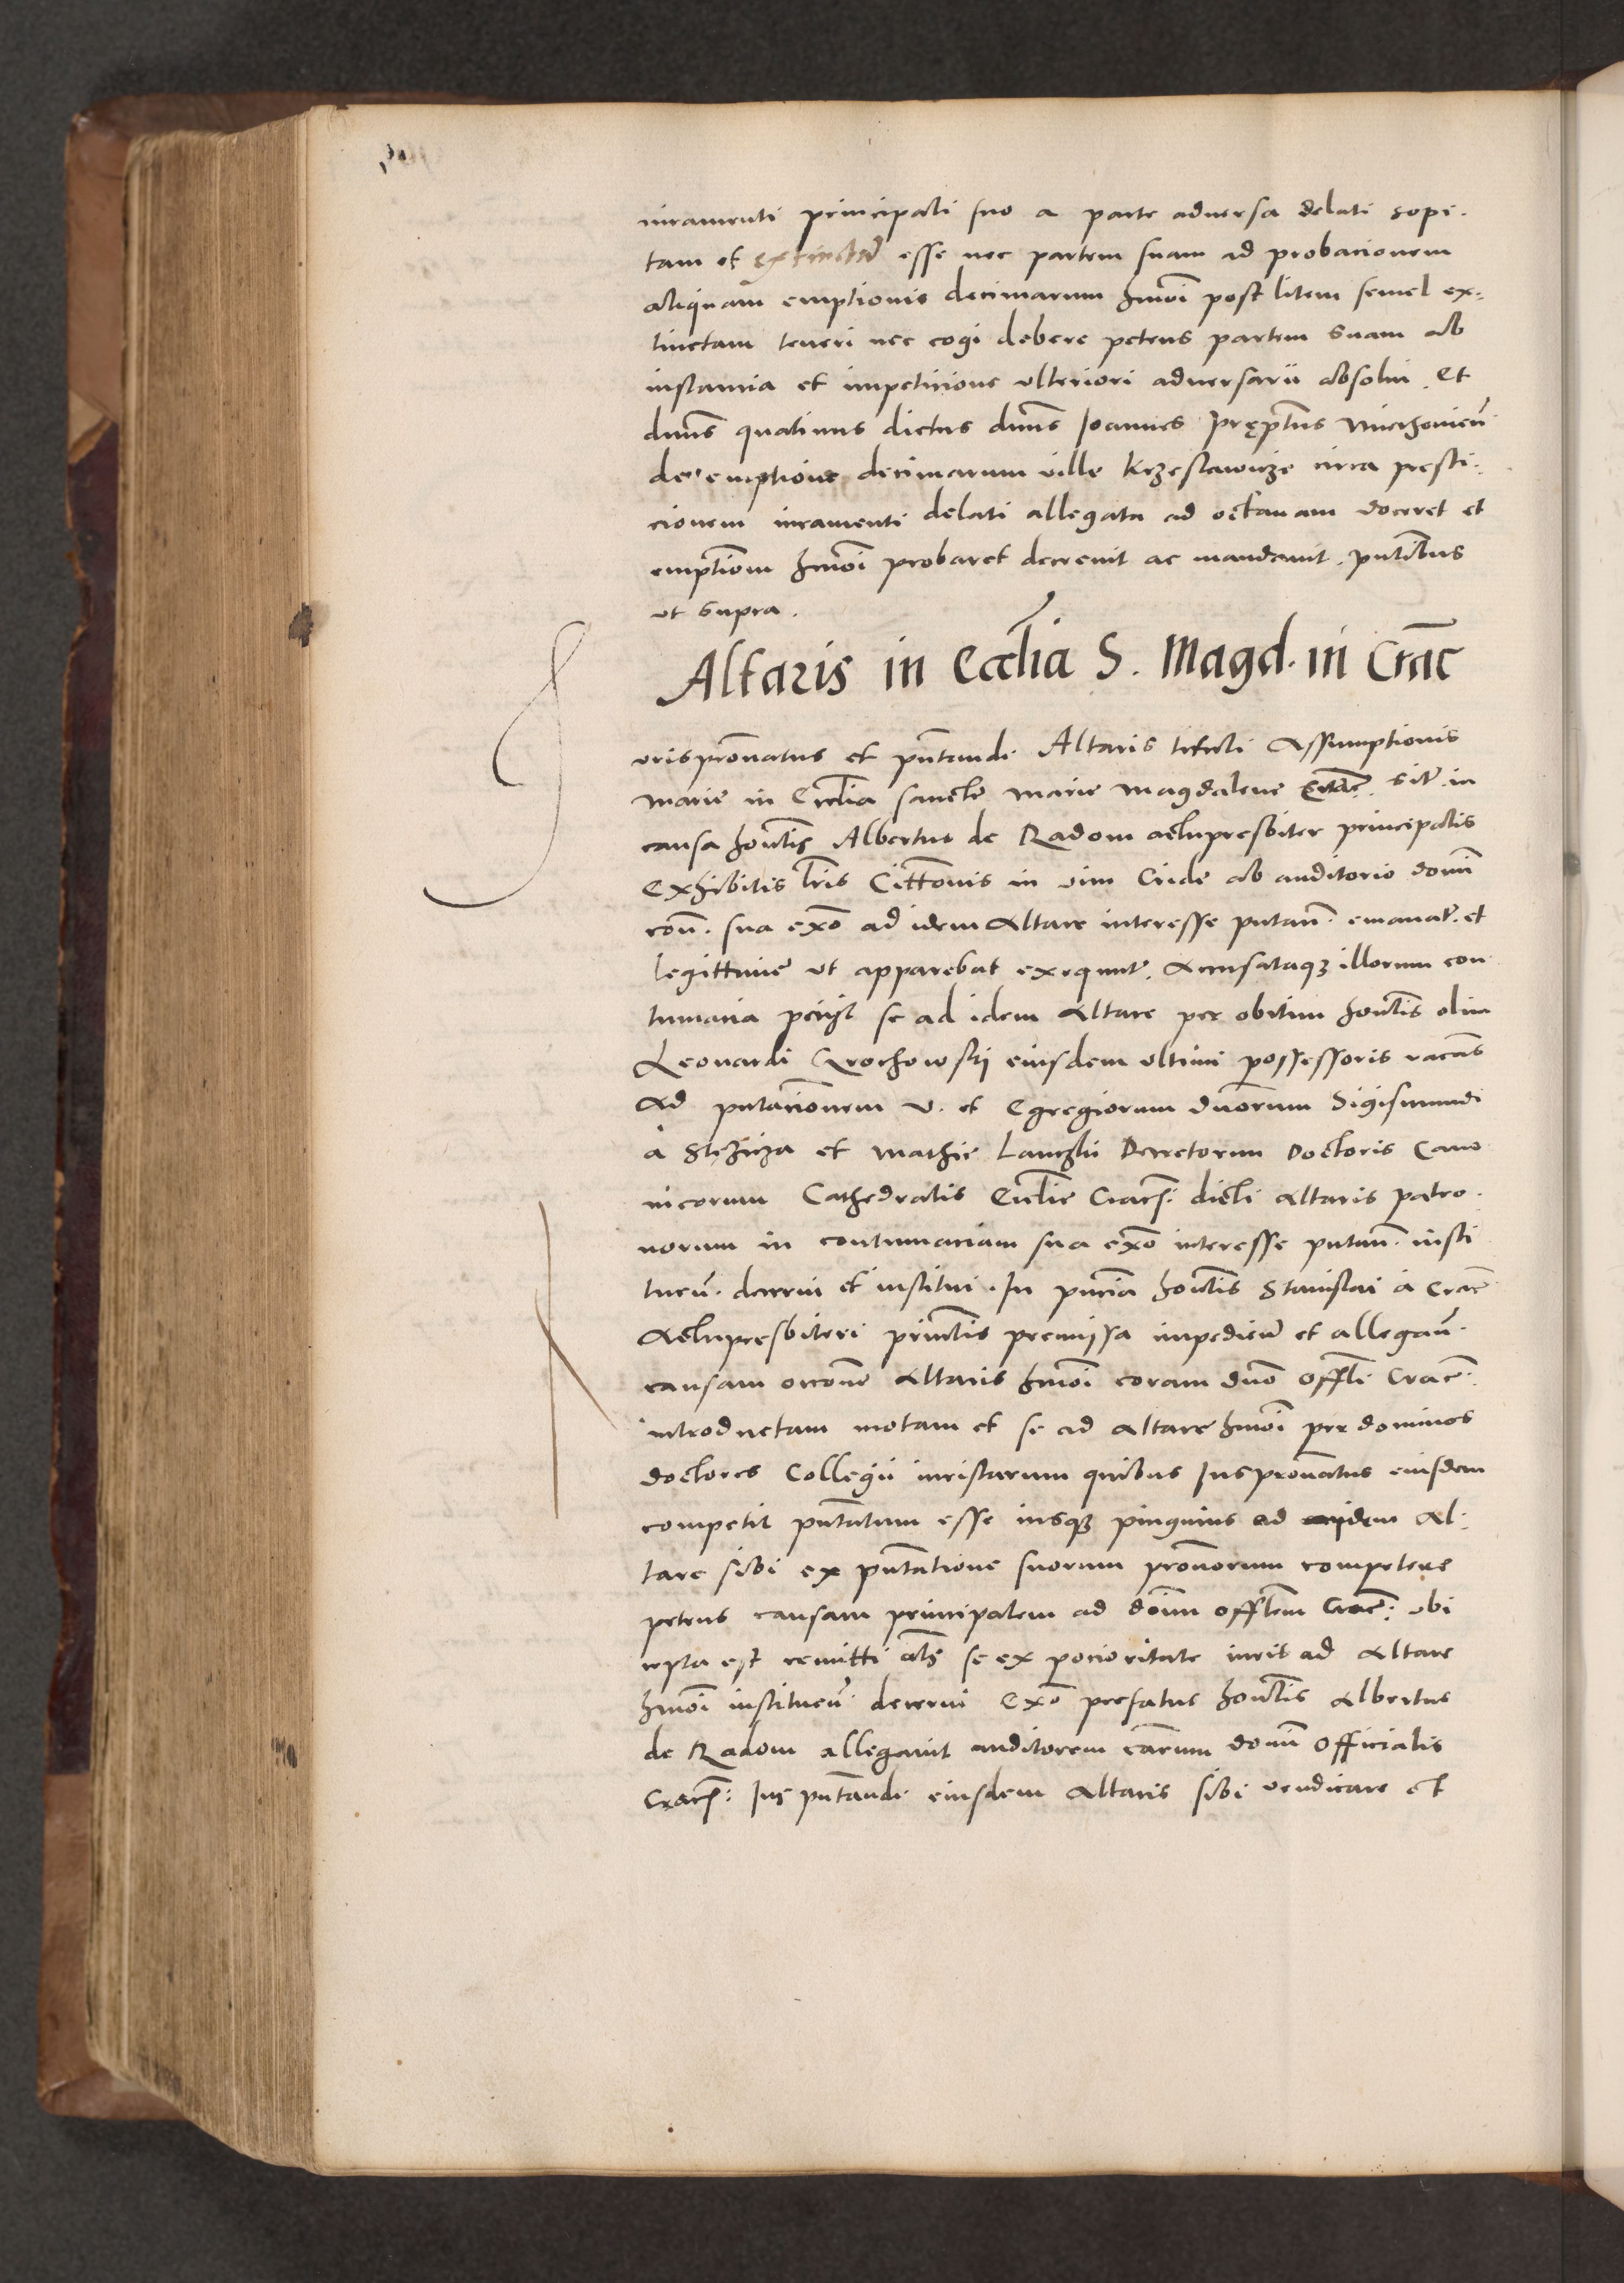 iuramenti principali suo a parte adversa delati sopi-
tam et extinctam esse nec partem suam ad probacionem
aliquam emptionis decimarum hmoi post litem semel ex-
tinctam teneri nec cogi debere petens partem suam ab
instancia et impeticione ulteriori adversarii absolui. Et
dnus quatinus dictus dnus Joannes Prepitus Miechouien
de emptione decimarum ville Krzeslawicze circa presti-
cionem iuramenti delati allegata ad octauam doceret et
emptiom hmoi probaret decrevit ac mandauit. pntibus
ut supra.
Altaris in Ecclia S. Magd. in Crac
Jurispronatus et pntandi Altaris tituli Assumptionis
Marie in Ecclia sancte Marie Magdalene Crac. sit. in
causa honlis Albertus de Radom actupresbiter principalis
Exhibitis lris Cittonis in vim Cride ab auditorio domi
com. sua exo ad idem Altare interesse putan. emanat. et
legittime ut apparebat exequut. Accusataqz illorum con
tumacia petijt se ad idem Altare per obitum honlis olim
Leonardi Grochowskij eiusdem ultimi possessoris vacans
Ad pntacionem V. et Egregiorum dnorum Sigismundi
a Stezicza et Mathie Decretorum Doctoris Cano
nicorum Cathedralis Ecclie Cracs. dicti Altaris patro-
norum in contumaciam sua exo interesse putan. insti
tuen. decerni et institui. In pncia honlis Stanislai a Crac
Actupresbiteri principlis premissa impedien et allegan.
causam occone Altaris hmoi coram dno Offli Crac.
introductam motam et se ad Altare hmoi per dominos
doctores Collegii iuristarum quibus Juspronatus eiusdem
competit pntatum esse iusqz pinguius ad idem Al-
tare sibi ex pntatione suorum pronorum competere
petens causam principalem ad dominum offlem Crac. ubi
cepta est remitti als se ex pocioritate iuris ad Altare
hmoi instituen. decerni Exo prefatus honlis Albertus
de Radom allegauit auditorem carum domi Officialis
Cracs. Jus pntandi eiusdem Altaris sibi vendicare et